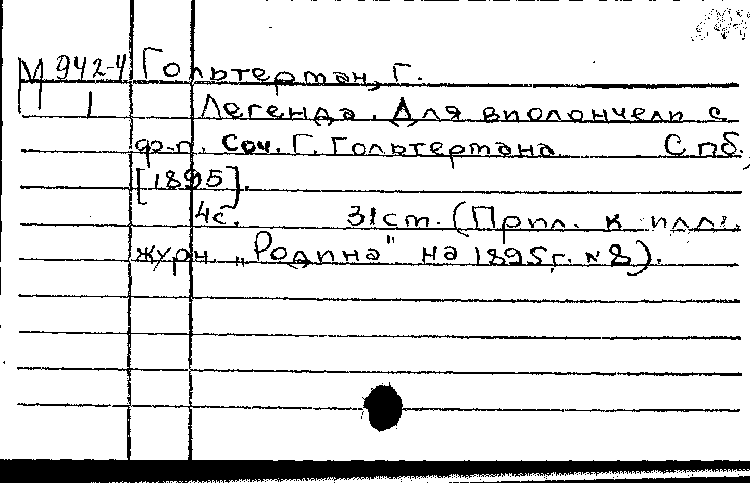 М 942-4 Гольтерман, Г.
1 Легенда. Для виолончели с
ф-п. Соч. Г. Гольтермана Спб.,
[1895].
4с. 31 ст. (Прил. к илл.
журн. „Родина" на 1895 г. №8).